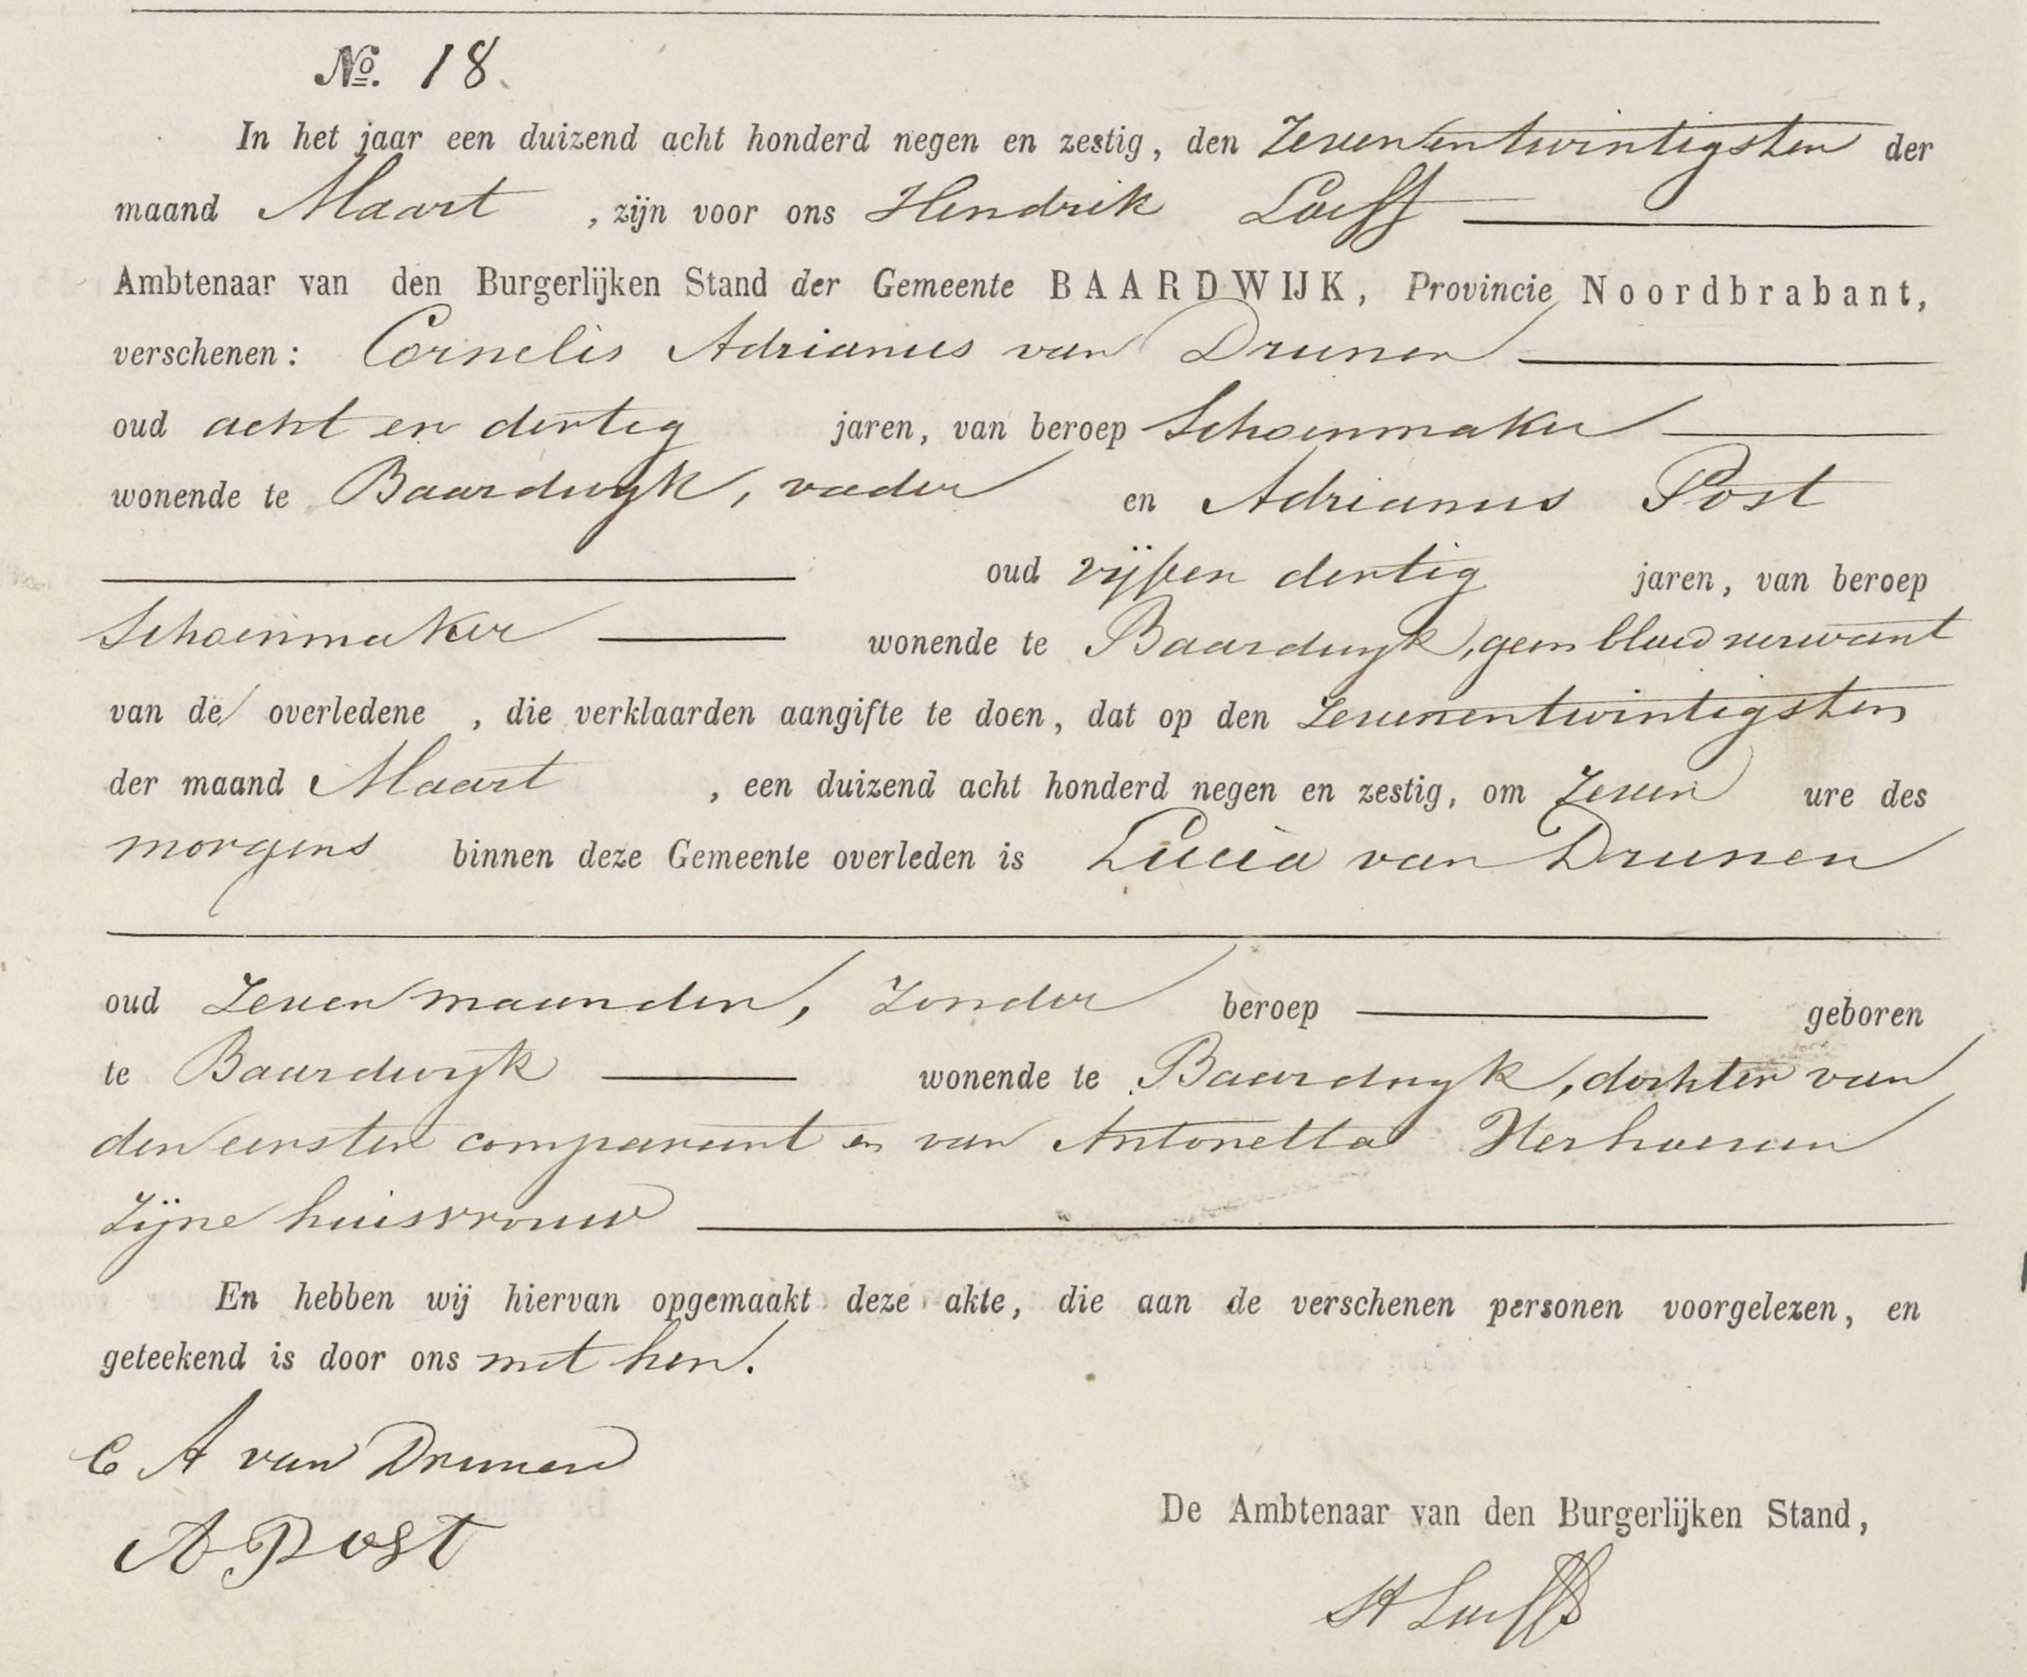 No. 18.
In het jaar een duizend acht honderd negen en zestig, den Zevenentwintigsten der
maand Maart , zijn voor ons Hendrik Loeff
Ambtenaar van den Burgerlijken Stand der Gemeente BAARDWIJK, Provincie Noordbrabant,
verschenen: Cornelis Adrianus van Drunen
oud acht en dertig jaren, van beroep Schoenmaker
wonende te Baardwyk, vader en Adrianus Post
oud vijfen dertig jaren, van beroep
Schoenmaker wonende te Baardwyk, geen bloedverwant
van de overledene , die verklaarden aangifte te doen, dat op den Zevenentwintigsten
der maand Maart , een duizend acht honderd negen en zestig, om Zeven ure des
morgens binnen deze Gemeente overleden is Lucia van Drunen
oud Zeven maanden, Zonder beroep geboren
te Baardwyk wonende te Baardwyk, dochter van
den eersten comparant en van Antonetta Verhoeven
Zijne huisvrouw
En hebben wij hiervan opgemaakt deze akte, die aan de verschenen personen voorgelezen, en
geteekend is door ons met hen.
C A van Drunen
A Post
De Ambtenaar van den Burgerlijken Stand,
H Loeff